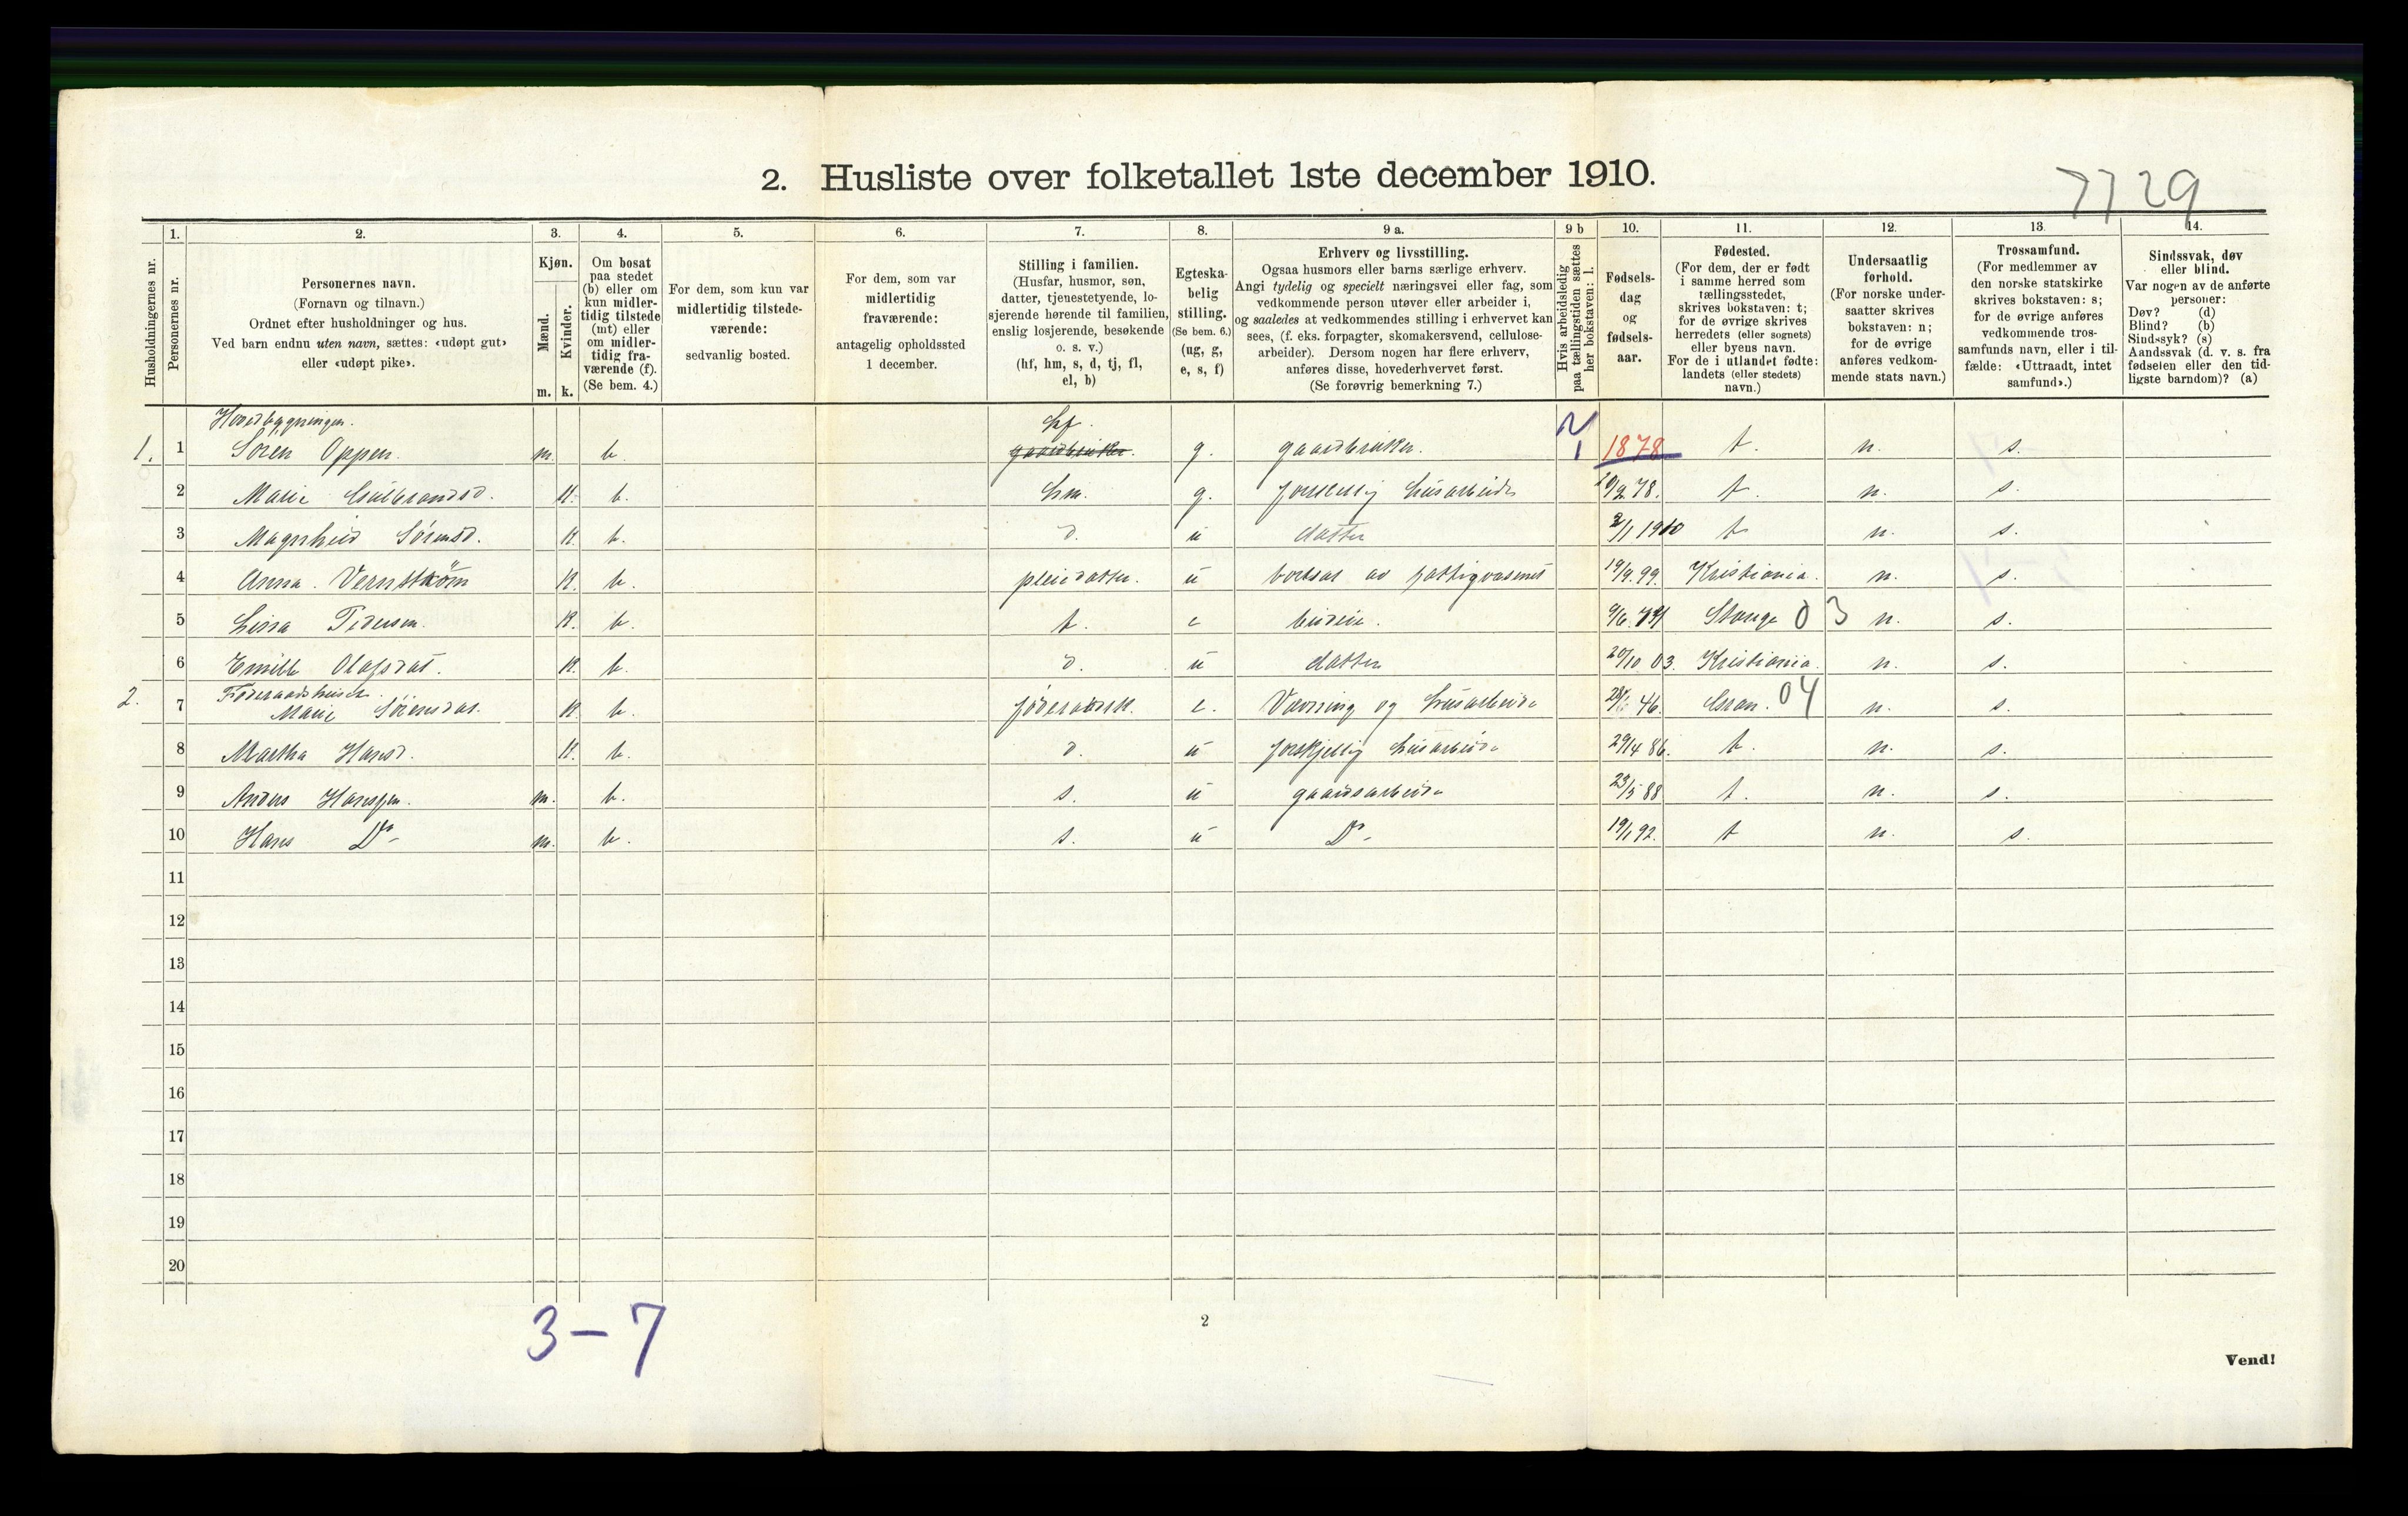 7729
2. Husliste over folketallet 1ste december 1910.
Husholdningernes nr.
1.
Personernes nr.
2.
Personernes navn.
(Fornavn og tilnavn.)
Ordnet efter husholdninger og hus.
Ved barn endnu uten navn, sættes: «udøpt gut»
eller «udøpt pike».
3.
Kjøn.
Mænd.
Kvinder.
m. k.
4.
Om bosat
paa stedet
(b) eller om
kun midler-
tidig tilstede
(mt) eller
om midler-
tidig fra-
værende (f).
(Se bem. 4.)
5.
For dem, som kun var
midlertidig tilstede-
værende:
sedvanlig bosted.
6.
For dem, som var
midlertidig
fraværende:
antagelig opholdssted
1 december.
7.
Stilling i familien.
(Husfar, husmor, søn,
datter, tjenestetyende, lo-
sjerende hørende til familien,
enslig losjerende, besøkende
o. s. v.)
(hf, hm, s, d, tj, fl,
el, b)
8.
Egteska-
belig
stilling.
(Se bem. 6.)
(ug, g,
e, s, f)
9 a.
Erhverv og livsstilling.
Ogsaa husmors eller barns særlige erhverv.
Angi tydelig og specielt næringsvei eller fag, som
vedkommende person utøver eller arbeider i,
og saaledes at vedkommendes stilling i erhvervet kan
sees, (f. eks. forpagter, skomakersvend, cellulose-
arbeider). Dersom nogen har flere erhverv,
anføres disse, hovederhvervet først.
(Se forøvrig bemerkning 7.)
9 b
Hvis arbeidsledig
paa tællingstiden sættes
her bokstaven: l.
10.
Fødsels-
dag
og
fødsels-
aar.
11.
Fødested.
(For dem, der er født
i samme herred som
tællingsstedet,
skrives bokstaven: t;
for de øvrige skrives
herredets (eller sognets)
eller byens navn.
For de i utlandet fødte:
landets (eller stedets)
navn.)
12.
Undersaatlig
forhold.
(For norske under-
saatter skrives
bokstaven: n;
for de øvrige
anføres vedkom-
mende stats navn.)
13.
Trossamfund.
(For medlemmer av
den norske statskirke
skrives bokstaven: s;
for de øvrige anføres
vedkommende tros-
samfunds navn, eller i til-
fælde: «Uttraadt, intet
samfund».)
14.
Sindssvak, døv
eller blind.
Var nogen av de anførte
personer:
Døv? (d)
Blind? (b)
Sindssyk? (s)
Aandssvak (d. v. s. fra
fødselen eller den tid-
ligste barndom)? (a)
Hovedbygningen.
1. 1 Sören Oppen. m. b. hf. gaardbruker. g. gaardbruker. 1 1878 t. n. s.
2 Marie Gulbrandsd. k. b. hm. g. forskellig husarbeide 10/2 78. t. n. s.
3 Magnhild Sörensd. k. b. d. u datter 2/1 1910 t n. s.
4 Anna Vernström k. b. pleiedatter. u bortsat av fattigvæsenet 19/9. 99. Kristiania. n. s.
5 Lina Pedersen. k. b. t. e budeie. Stange 03 n. s.
6 Emilie Olafsdat. k. b. d. u datter 20/10 03. Kristiania. n. s.
Föderaadshuset.
2. 7 Marie Sörensdat. k. b. e. Vævning og husarbeide 46. Gran. 04 n. s.
8 Martha Hansd. k. b. d. u forskjellig husarbeide 29/4 86. t. n. s.
9 Anders Hansen. m. b. s. u gaardsarbeide 23/5 88 t. n. s.
10 Hans Do- m. b. s. u Do- 19/1 92. t n. s.
11
12
13
14
15
16
17
18
19
20
3-7
2
Vend!